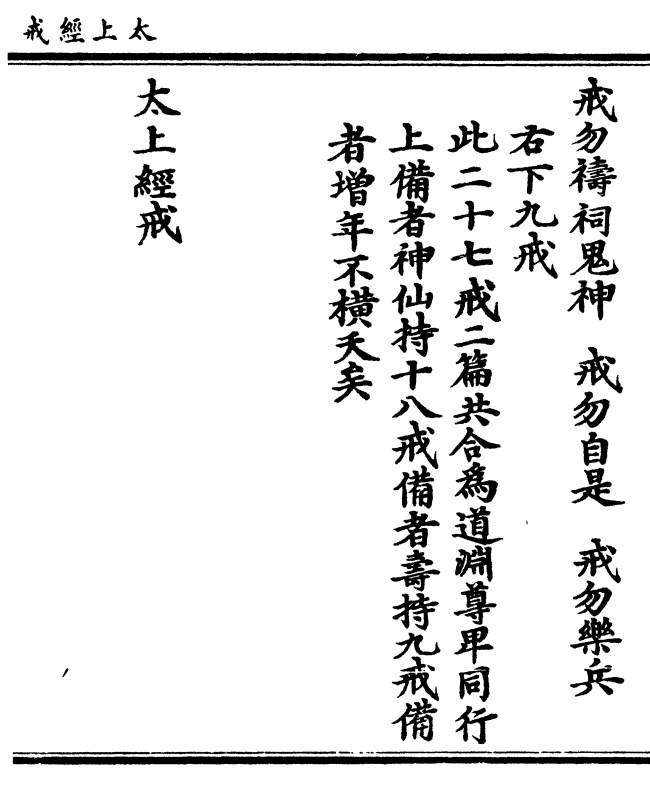 太上經戒
戒勿禱祠鬼神　戒勿自是　戒勿樂兵
右下九戒
此二十七戒二篇共合爲道淵尊卑同行
上備者神仙持十八戒備者壽持九戒備
者增年不橫夭矣
太上經戒